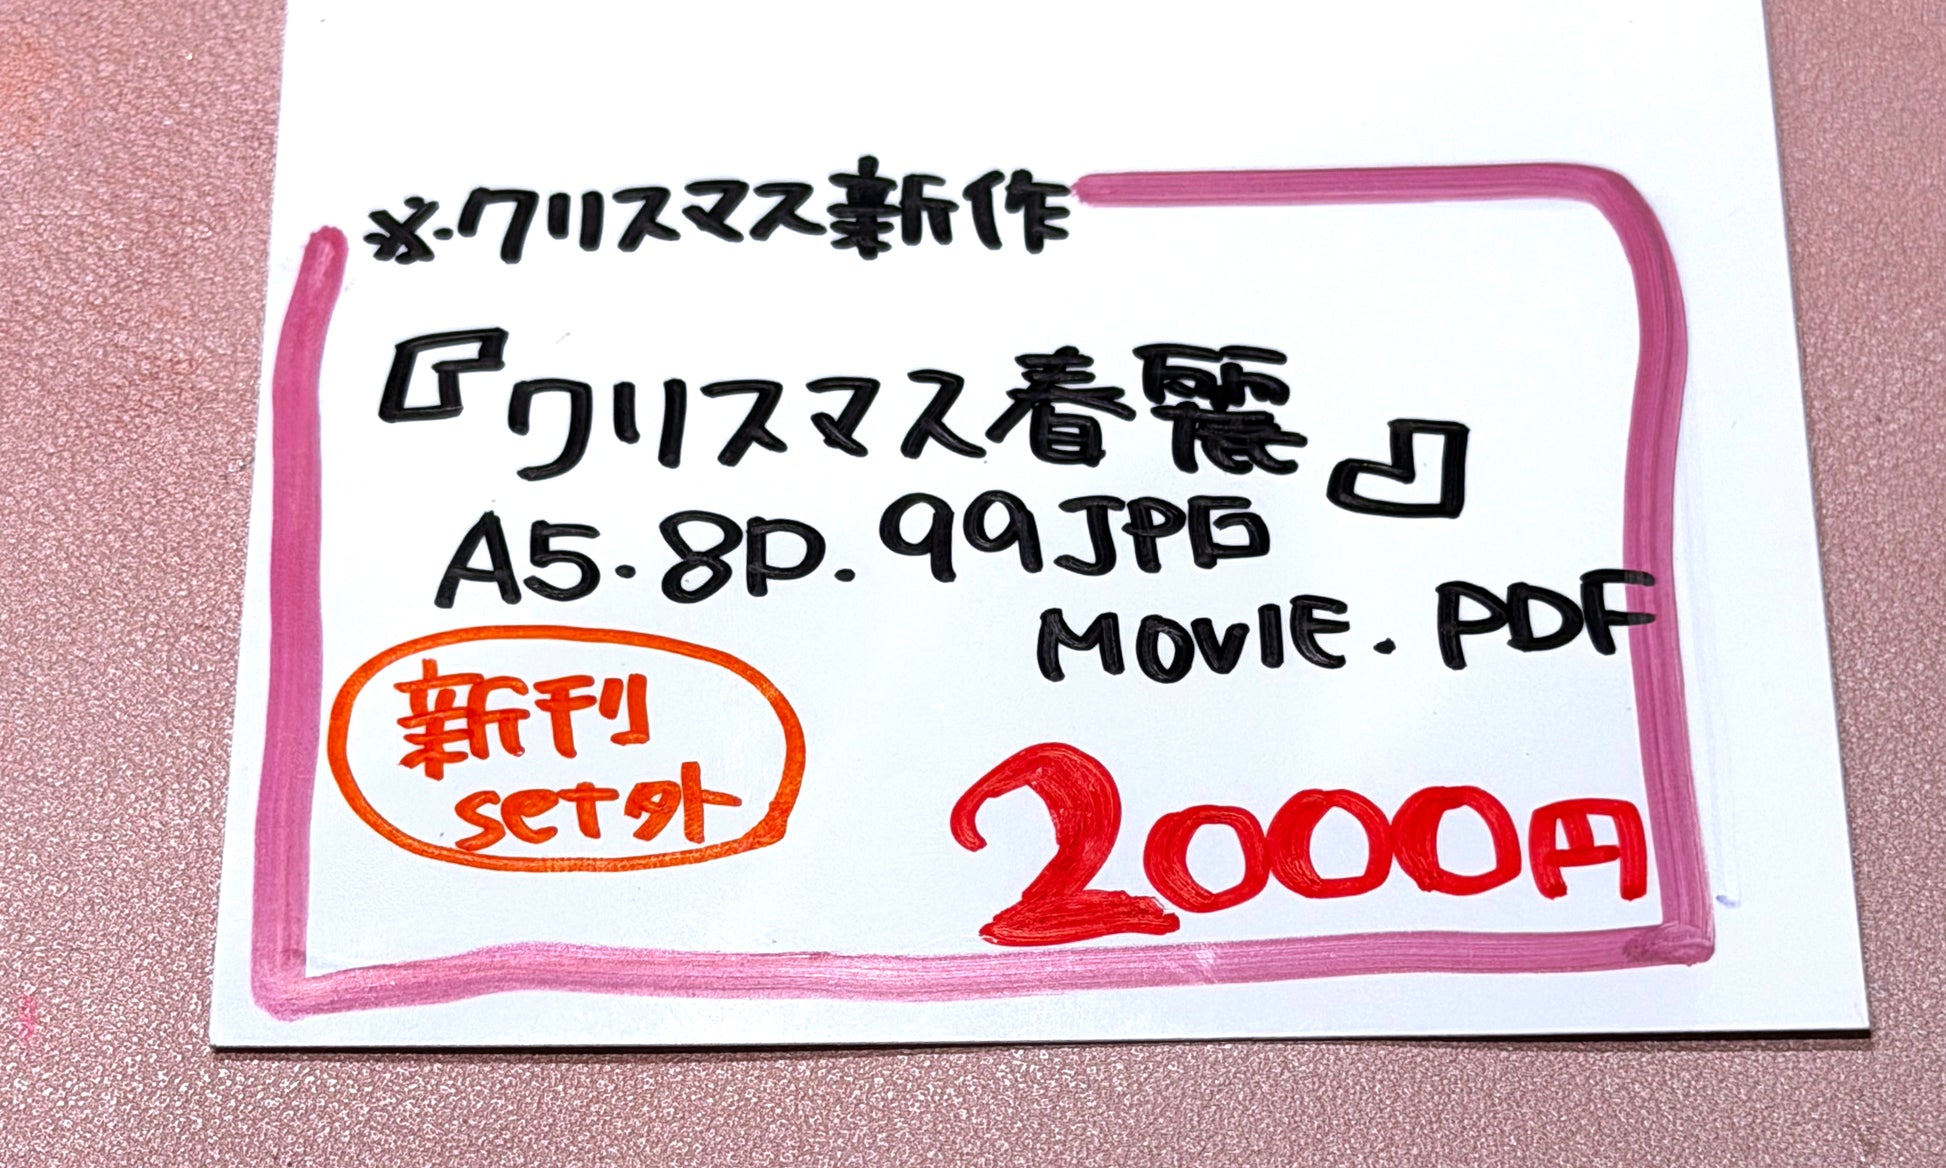 ※.クリスマス新作
『クリスマス春麗』
A5.8P.99JPG
MOVIE.PDF
新刊
set外
2000円